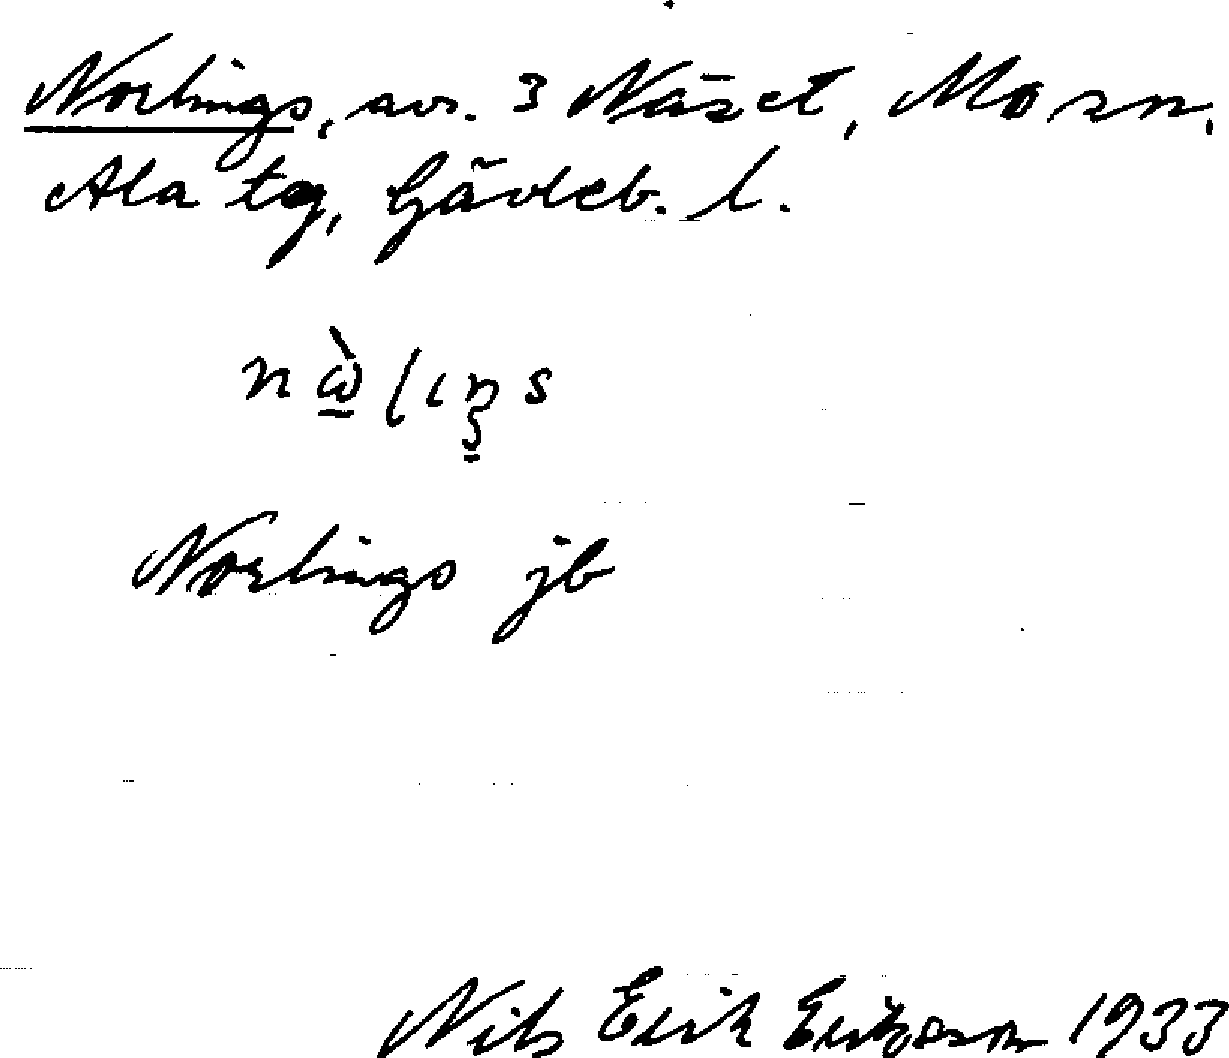 Norlings, avs. 3 Näset, Mo sn.
Ala tg, Gävleb. l.
Norlings jb
Nils Erik Eriksson 1933